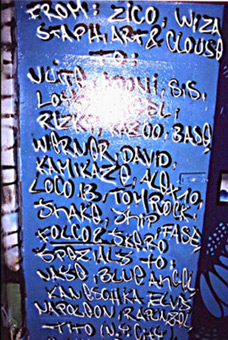 FROM: ZICO, WIZA
STAPH, ART & CLOUSO
TO:
SIS,
RIZKO, KAZOO, BASE
WERNER, DAVID,
KAMIKAZE, ALEX10,
LOCO 13, TOM ROCK,
SHAKE, SHIP, FASE
FOLCO & SKERO
SPEZIALS TO:
NASE, BLUE ANGEL
KANESCHKA, ELVS
NAPOLEON, RAPUNZEL,
TITO (N.Y. CITY